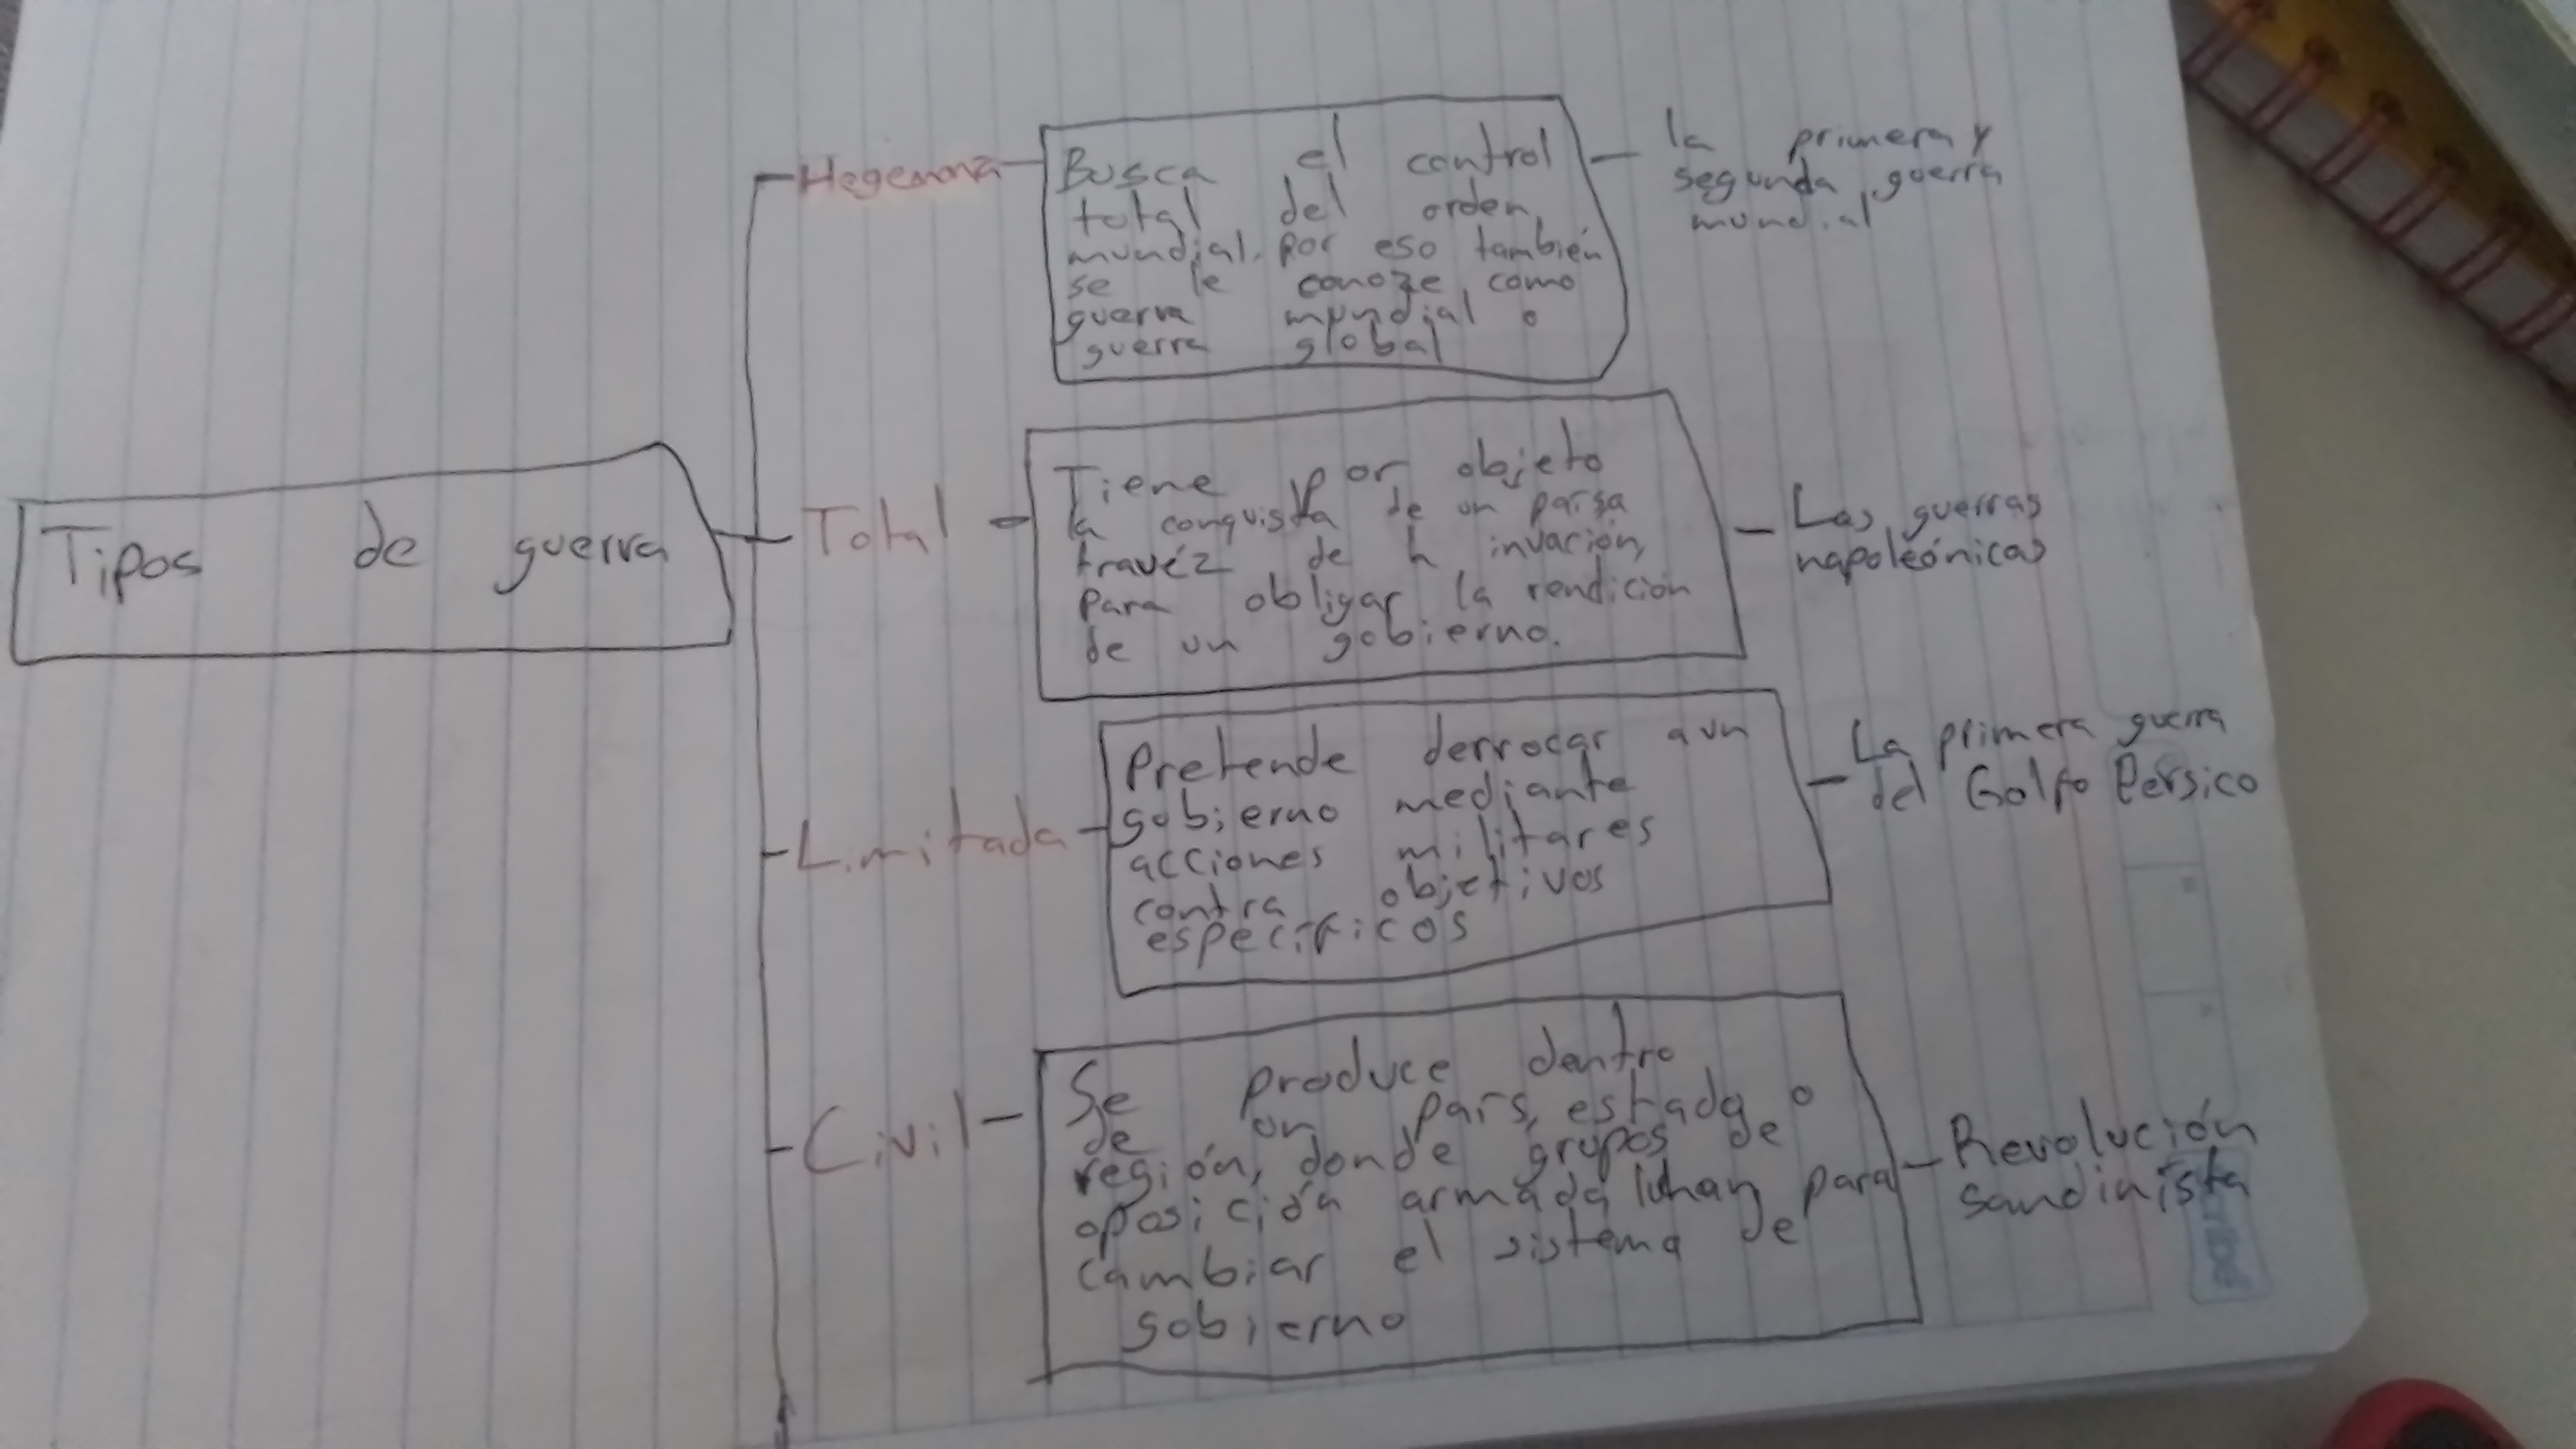 Tipos de guerra
Hegemonía
Busca el control
total del orden
mundial. por eso también
se le conoze como
guerra mundial o
guerra global
la primera y
segunda guerra
mundial
Total
Tiene por objeto
la conquista de un país a
travéz de la invación,
para obligar la rendición
de un gobierno.
Las guerras
napoleónicas
Limitada
Pretende derrocar a un
gobierno mediante
acciones militares
contra objetivos
específicos
La primera guerra
del Golfo Pérsico
Civil
Se produce dentro
de un país, estado o
región, donde grupos de
oposición armada luhan para
cambiar el sistema de
gobierno
Revolución
sandinista